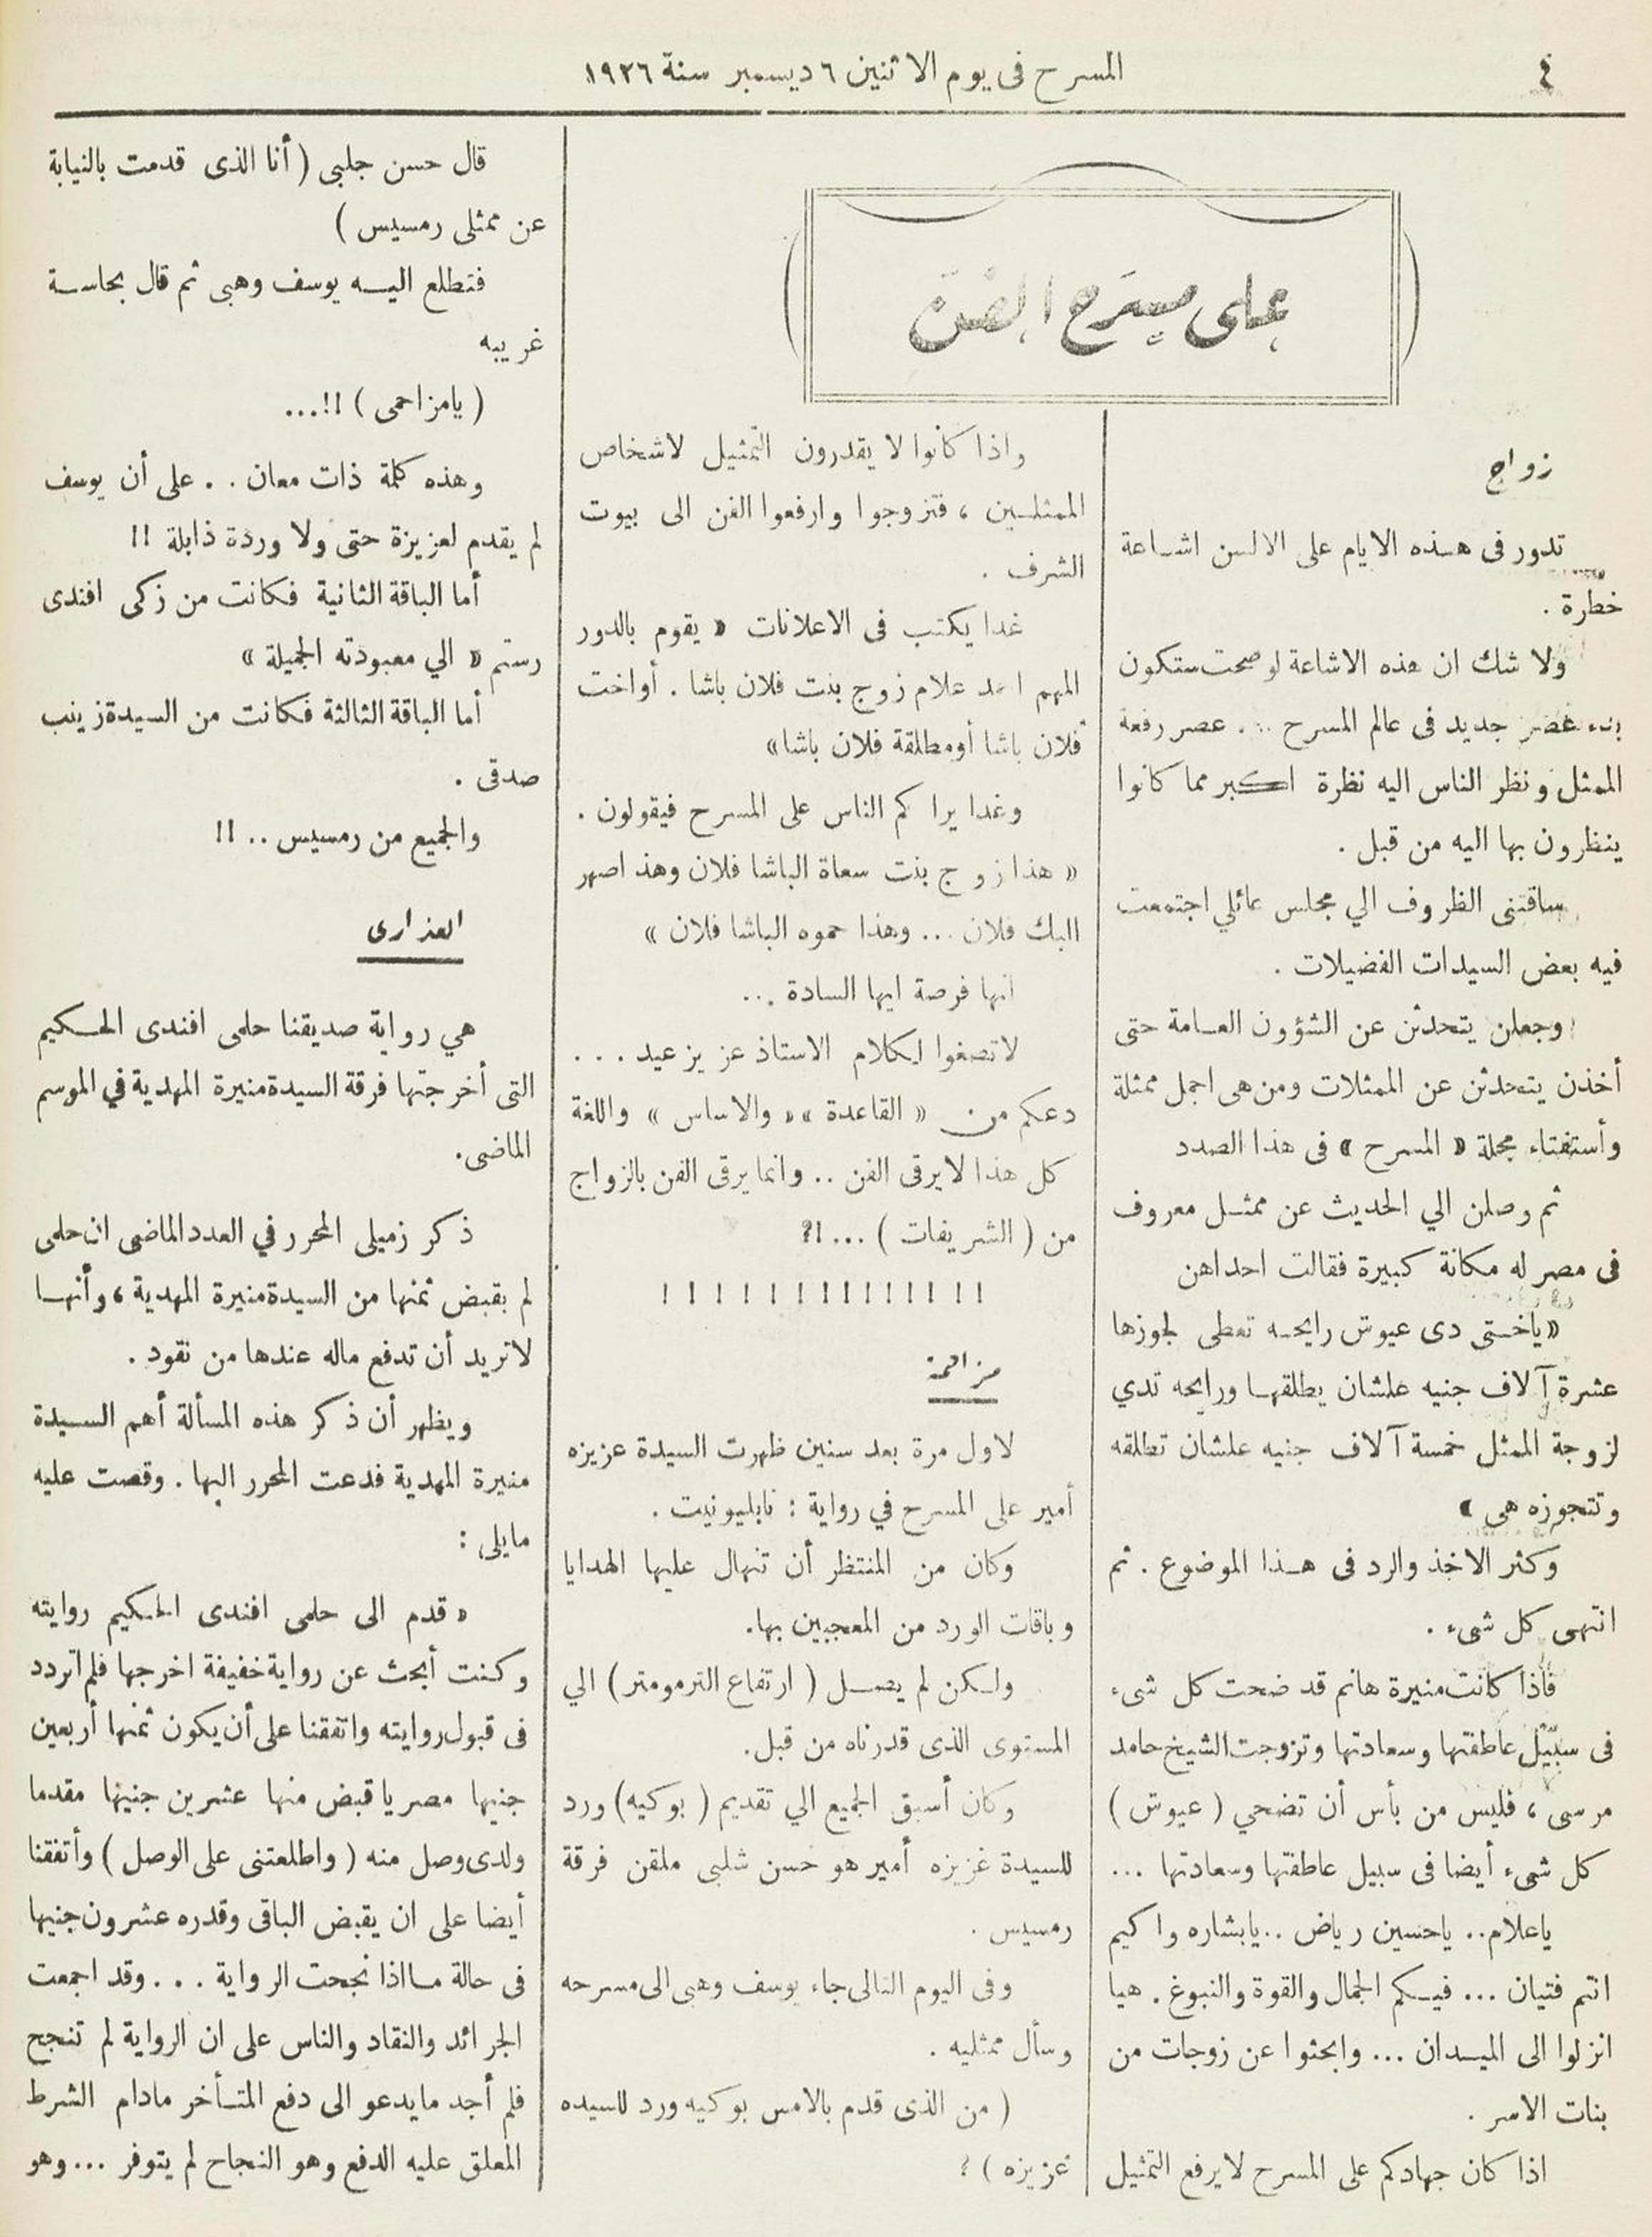 ٤
المسرح فى يوم الاثنين ٦ ديسمبر سنة ١٩٢٦
على مسرح الفن
زواج
تدور فى هذه الايام على الالسن اشاعة
خطرة .
ولا شك ان هذه الاشاعة لو صحت ستكون
بدء عصر جديد فى عالم المسرح .. . عصر رفعة
الممثل ونظر الناس اليه نظرة اكبر مما كانوا
ينظرون بها اليه من قبل .
ساقتنى الظروف الي مجلس عائلي اجتمعت
فيه بعض السيدات الفضيلات .
وجعلن يتحدثن عن الشؤون العامة حتى
أخذن يتحدثن عن الممثلات ومن هى اجمل ممثلة
وأستفتاء مجلة « المسرح » فى هذا الصدد
ثم وصلن الي الحديث عن ممثل معروف
فى مصر له مكانة كبيرة فقالت احداهن
« ياختى دى عيوش رايحه تعطى لجوزها
عشرة آلاف جنيه علشان يطلقها ورايحه تدي
لزوجة الممثل خمسة آلاف جنيه علشان تطلقه
وتتجوزه هى »
وكثر الاخذ والرد فى هذا الموضوع . ثم
انتهى كل شىء .
فاذا كانت منيرة هانم قد ضحت كل شىء
فى سبيل عاطفتها وسعادتها وتزوجت الشيخ حامد
مرسى ، فليس من بأس أن تضحي ( عيوش )
كل شىء أيضا فى سبيل عاطفتها وسعادتها ...
ياعلام .. ياحسين رياض .. يابشاره واكيم
انتم فتيان ... فيكم الجمال والقوة والنبوغ . هيا
انزلوا الى الميدان ... وابحثوا عن زوجات من
بنات الاسر .
اذا كان جهادكم على المسرح لا يرفع التمثيل
واذا كانوا لا يقدرون التمثيل لاشخاص
الممثلين ، فتزوجوا وارفعوا الفن الى بيوت
الشرف .
غدا يكتب فى الاعلانات « يقوم بالدور
المهم احمد علام زوج بنت فلان باشا . أواخت
فلان باشا أومطلقة فلان باشا»
وغدا يراكم الناس على المسرح فيقولون .
« هذا زوج بنت سعاة الباشا فلان وهذ اصهر
البك فلان ... وهذا حموه الباشا فلان »
انها فرصة ايها السادة ...
لاتصغوا لكلام الاستاذ عزيز عيد ...
دعكم من « القاعدة »« والاساس » واللغة
كل هذا لا يرقى الفن .. وانما يرقى الفن بالزواج
من ( الشريفات ) ...!؟
! ! ! ! ! ! ! ! ! ! ! ! !
مزاحمة
لاول مرة بعد سنين ظهرت السيدة عزيزه
أمير على المسرح في رواية : نابليونيت .
وكان من المنتظر أن تنهال عليها الهدايا
وباقات الورد من المعجبين بها.
ولكن لم يصل ( ارتفاع الترمومتر ) الي
المستوى الذى قدرناه من قبل.
وكان أسبق الجميع الي تقديم ( بوكيه ) ورد
للسيدة عزيزه أمير هو حسن شلبى ملقن فرقة
رمسيس .
وفى اليوم التالى جاء يوسف وهبى الى مسرحه
وسأل ممثليه .
( من الذى قدم بالامس بوكيه ورد للسيده
عزيزه ) ؟
قال حسن جلبى ( أنا الذى قدمت بالنيابة
عن ممثلى رمسيس )
فتطلع اليه يوسف وهبى ثم قال بحماسة
غريبه
( يامزاحمى ) !! ...
وهذه كلمة ذات معان . . على أن يوسف
لم يقدم لعزيزة حتى ولا وردة ذابلة !!
أما الباقة الثانية فكانت من زكى افندى
رستم « الي معبودته الجميلة »
أما الباقة الثالثة فكانت من السيدة زينب
صدقى .
والجميع من رمسيس .. !!
العذارى
هي رواية صديقنا حلمى افندى الحكيم
التى أخرجتها فرقة السيدة منيرة المهدية في الموسم
الماضى.
ذكر زميلى المحرر في العدد الماضى ان حلمى
لم يقبض ثمنها من السيدة منيرة المهدية ، وأنها
لاتريد أن تدفع ماله عندها من نقود .
ويظهر أن ذكر هذه المسألة أهم السيدة
منيرة المهدية فدعت المحرر اليها . وقصت عليه
مايلى :
« قدم الى حلمى افندى الحكيم روايته
وكنت أبحث عن رواية خفيفة اخرجها فلم اتردد
فى قبول روايته واتفقنا على أن يكون ثمنها أربعين
جنيها مصريا قبض منها عشرين جنيها مقدما
ولدى وصل منه ( واطلعتنى على الوصل ) وأتفقنا
أيضا على ان يقبض الباقى وقدره عشرون جنيها
فى حالة مااذا نجحت الرواية ... وقد اجمعت
الجرائد والنقاد والناس على ان الرواية لم تنجح
فلم أجد مايدعو الى دفع المتأخر مادام الشرط
المعلق عليه الدفع وهو النجاح لم يتوفر ... وهو